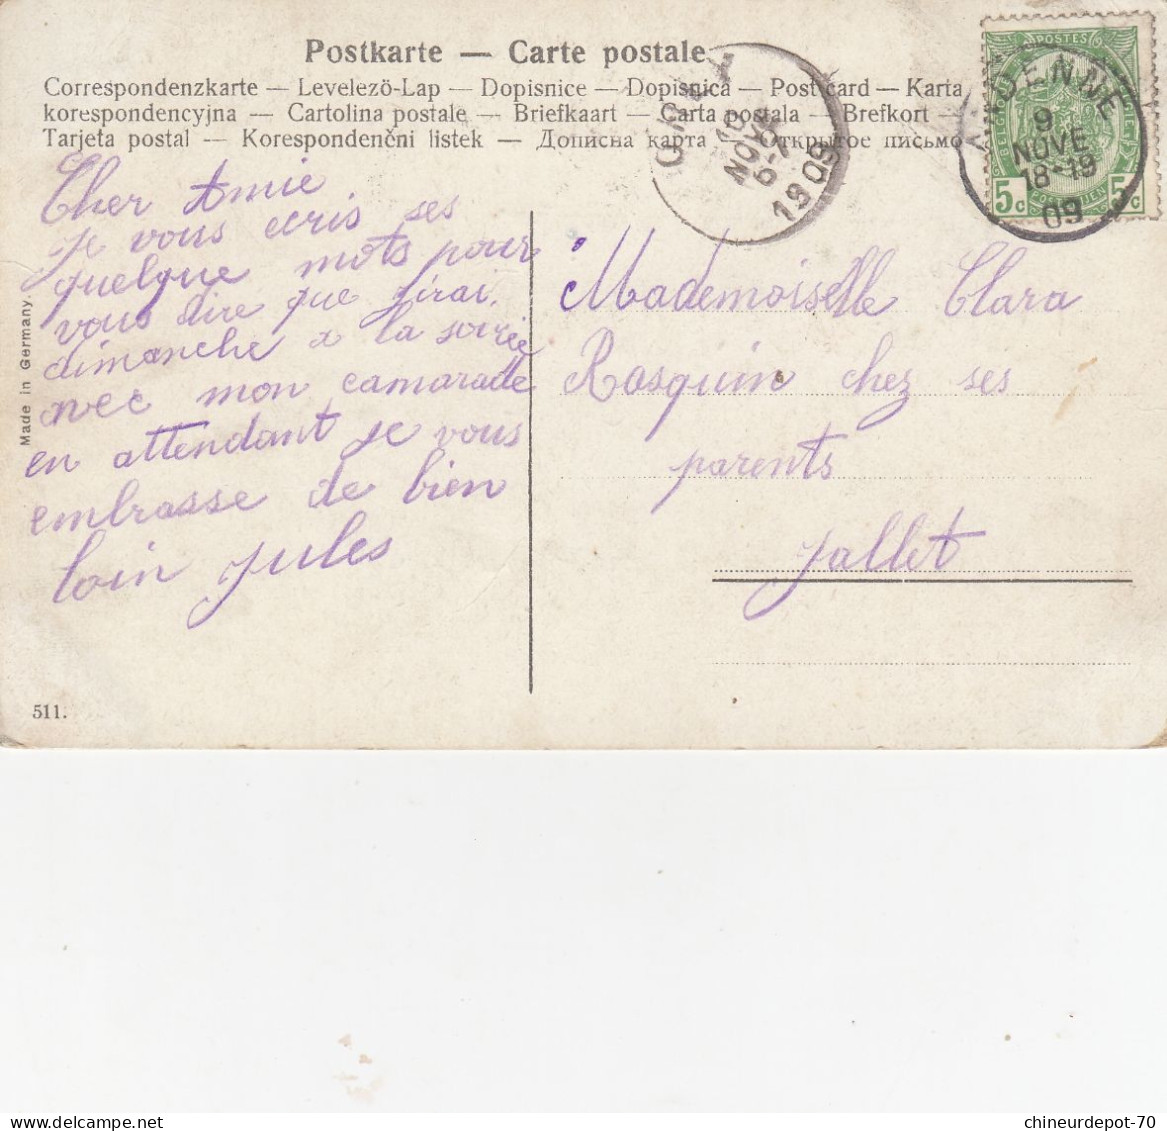 Postkarte — Carte postale
Correspondenzkarte — Levelezö-Lap — Dopisnice — Dopisnica — Post card — Karta
korespondencyjna — Cartolina postale — Briefkaart — Carta postala — Brefkort —
Tarjeta postal — Korespondenčni listek — Дописна карта — Открытое письмо
POSTES
5c 5c
ANDENNE
9
NOVE
18-19
09
NOV
1909
Cher Amie
je vous ecris ses
quelque mots pour
vous dire que jirai
dimanche a la soirée
avec mon camarade
en attendant je vous
embrasse de bien
loin Jules
Mademoiselle Clara
Rasquin chez ses
parents
Jallet
Made in Germany.
511.
chineurdepot-70